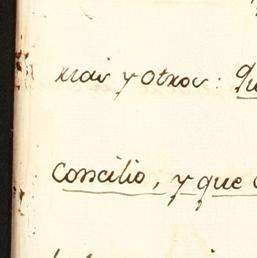 rias y otros: Qu
Conscilio, y que